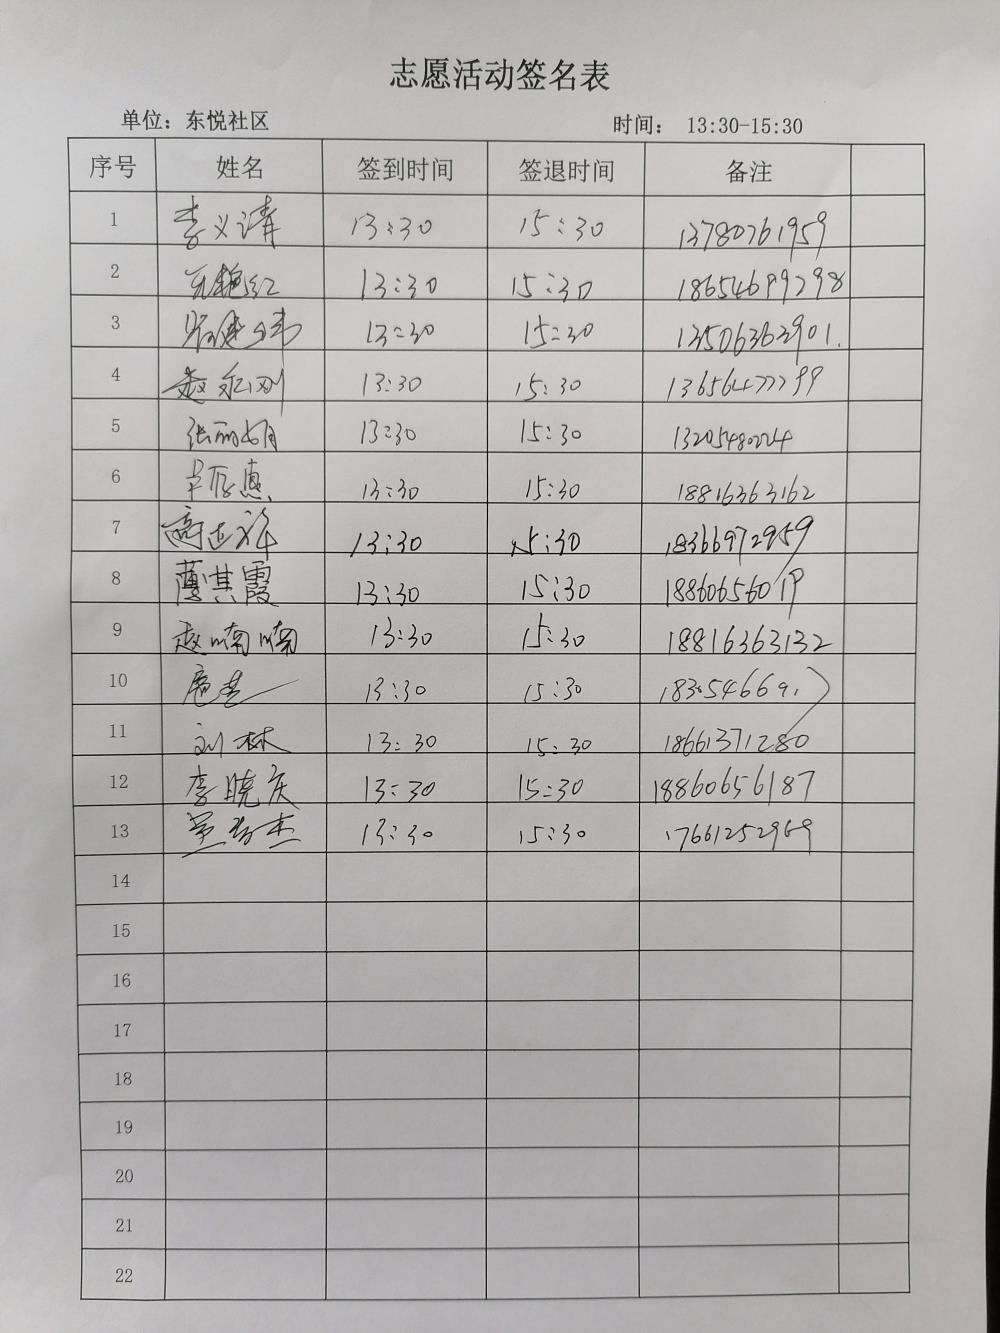 志愿活动签名表
单位：东悦社区 时间： 13:30-15:30
序号 姓名 签到时间 签退时间 备注
1 李义清 13:30 15:30 13780761959
2 艳红 13:30 15:30 18654699298
3 13:30 15:30 13506363901.
4 赵永刚 13:30 15:30 13656477799
5 张丽娟 13:30 15:30 13205480224
6 毕厚惠 13:30 15:30 18816363162
7 高志祥 13:30 15:30 18366972959
8 薄其霞 13:30 15:30 18860656019
9 赵喃喃 13:30 15:30 18816363132
10 13:30 15:30
11 刘林 13:30 15:30 18661371280
12 李晓庆 13:30 15:30 18860656187
13 13:30 15:30 17661252969
14
15
16
17
18
19
20
21
22